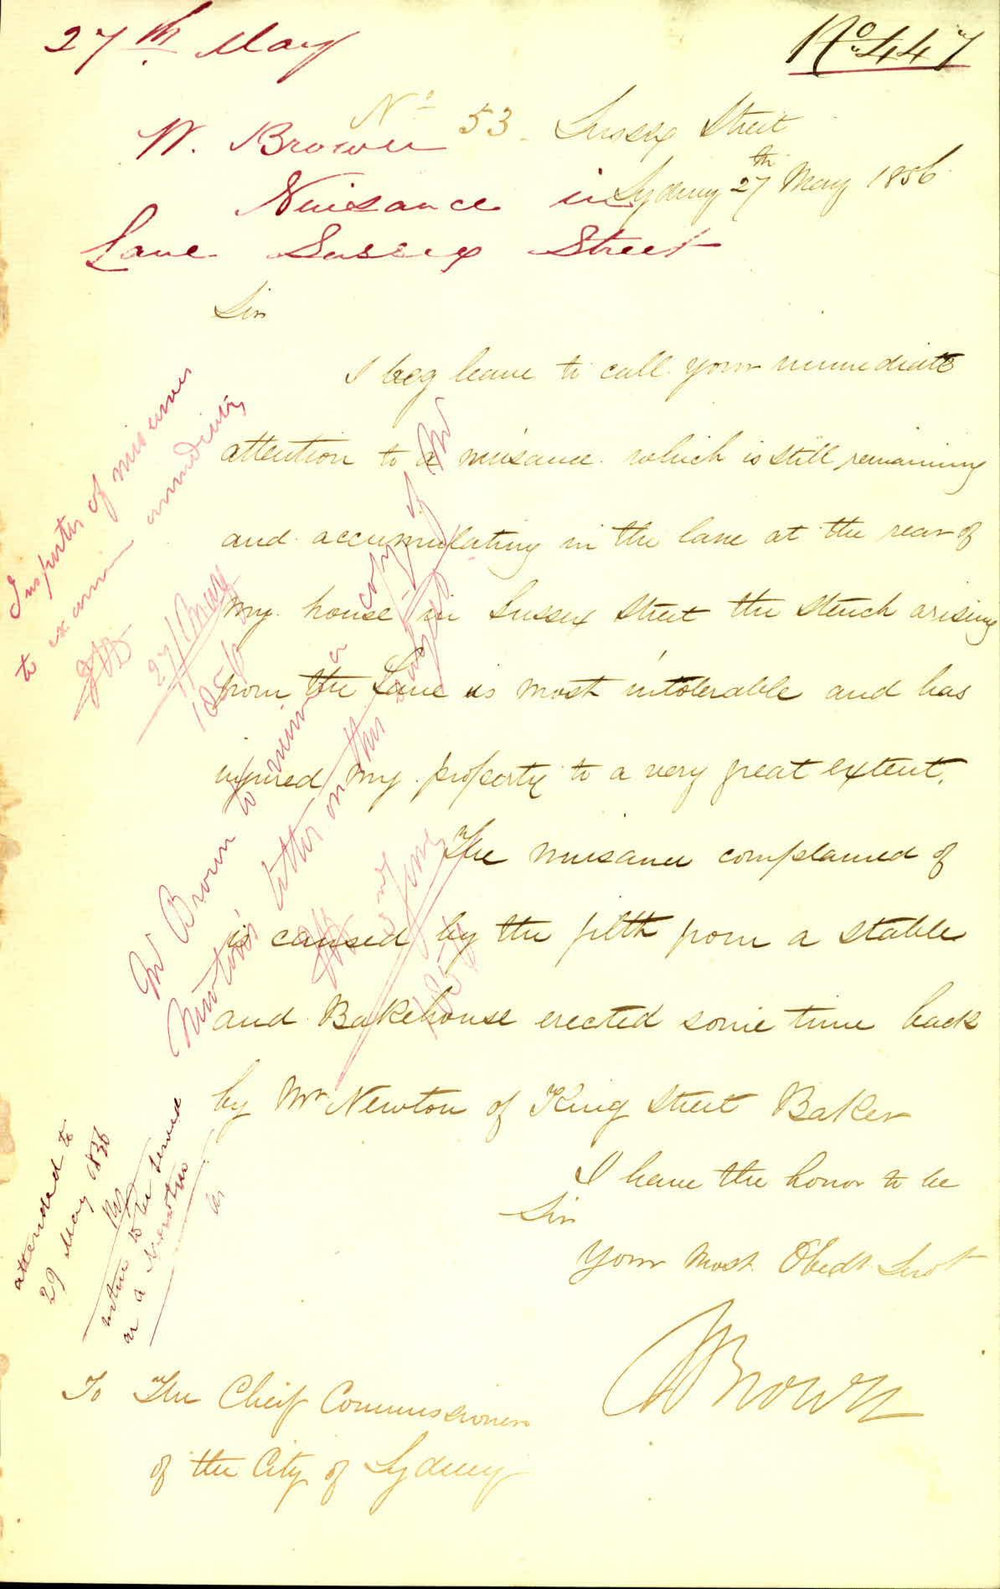 27th May
No. 447
No 53 Sussex Street
W. Brown
Sydney 27th May 1856
Nuisance in
Lane Sussex Street
Sir
I beg leave to call your immediate
attention to a nuisance which is still remaining
and accumulating in the lane at the rear of
my house in Sussex Street the stench arising
from the Lane is most intolerable and has
injured my property to a very great extent.
The nuisance complained of
is caused by the filth from a stable
and Bakehouse erected some time back
by Mr Newton of King Street Baker
I have the honor to be
Sir
Your Most Obedt Servt
W Brown
To The Chief Commissioner
of the City of Sydney
Inspector of nuisances
to examine immediately
27/May
1856
Mr Brown to a copy of Mr
Newton's letter on this subject
June
attended to
29 May 1856
notice to be served
on a Newton